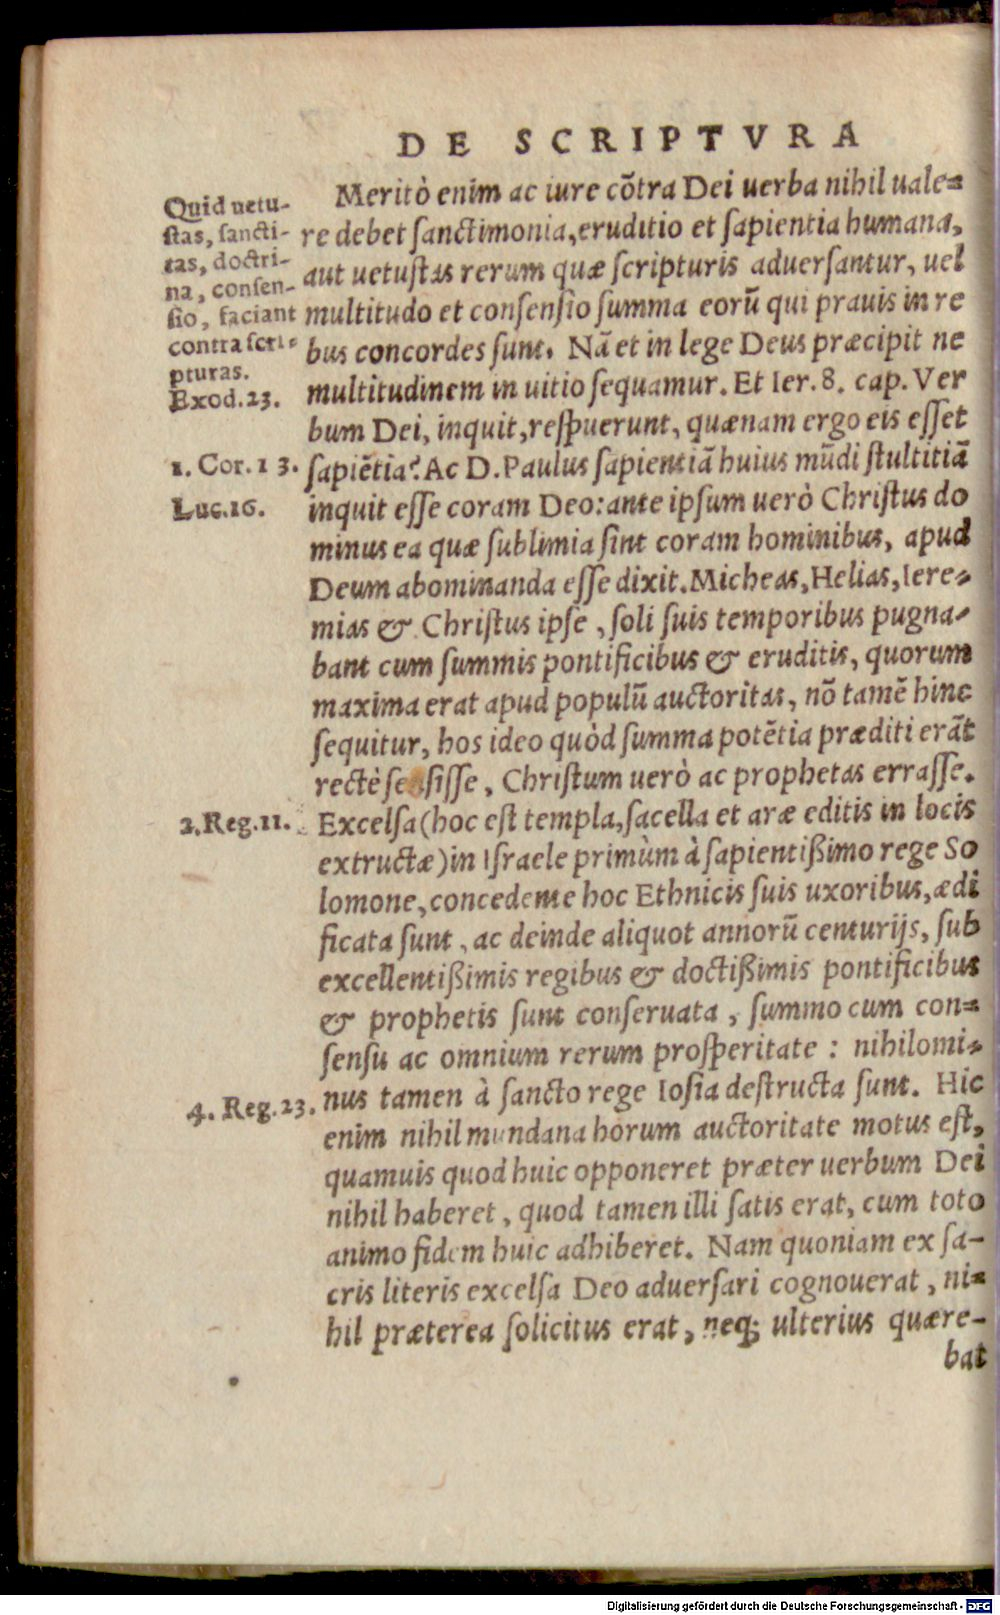 DE SCRIPTVRA
Quid uetu-
ſtas, ſancti-
tas, doctri-
na, conſen-
ſio, faciant
contra ſcri-
pturas.
Exod.23.
1. Cor.13.
Luc.16.
2.Reg.11.
4. Reg.23.
Meritò enim ac iure cõtra Dei uerba nihil uale-
re debet ſanctimonia,eruditio et ſapientia humana,
aut uetuſtas rerum quæ ſcripturis aduerſantur, uel
multitudo et conſenſio ſumma eorũ qui prauis in re
bus concordes ſunt. Nã et in lege Deus præcipit ne
multitudinem in uitio ſequamur. Et Ier. 8. cap. Ver
bum Dei, inquit,reſpuerunt, quænam ergo eis eſſet
ſapiẽtia? Ac D. Paulus ſapientiã huius mũdi ſtultitiã
inquit eſſe coram Deo: ante ipſum uerò Chriſtus do
minus ea quæ ſublimia ſint coram hominibus, apud
Deum abominanda eſſe dixit. Micheas, Helias, Iere-
mias & Chriſtus ipſe, ſoli ſuis temporibus pugna-
bant cum ſummis pontificibus & eruditis, quorum
maxima erat apud populũ auctoritas, nõ tamẽ hinc
ſequitur, hos ideo quòd ſumma potẽtia præditi erãt
rectè ſenſiſſe, Chriſtum uerò ac prophetas erraſſe.
Excelſa (hoc eſt templa, ſacella et aræ editis in locis
extructæ) in Iſraele primùm à ſapientißimo rege So
lomone, concedente hoc Ethnicis ſuis uxoribus, ædi
ficata ſunt, ac deinde aliquot annorũ centurijs, ſub
excellentißimis regibus & doctißimis pontificibus
& prophetis ſunt conſeruata, ſummo cum con-
ſenſu ac omnium rerum proſperitate : nihilomi-
nus tamen à ſancto rege Ioſia deſtructa ſunt. Hic
enim nihil mundana horum auctoritate motus eſt,
quamuis quod huic opponeret præter uerbum Dei
nihil haberet, quod tamen illi ſatis erat, cum toto
animo fidem huic adhiberet. Nam quoniam ex ſa-
cris literis excelſa Deo aduerſari cognouerat, ni-
hil præterea ſolicitus erat, neq; ulterius quære-
bat
Digitalisierung gefördert durch die Deutsche Forschungsgemeinschaft - DFG